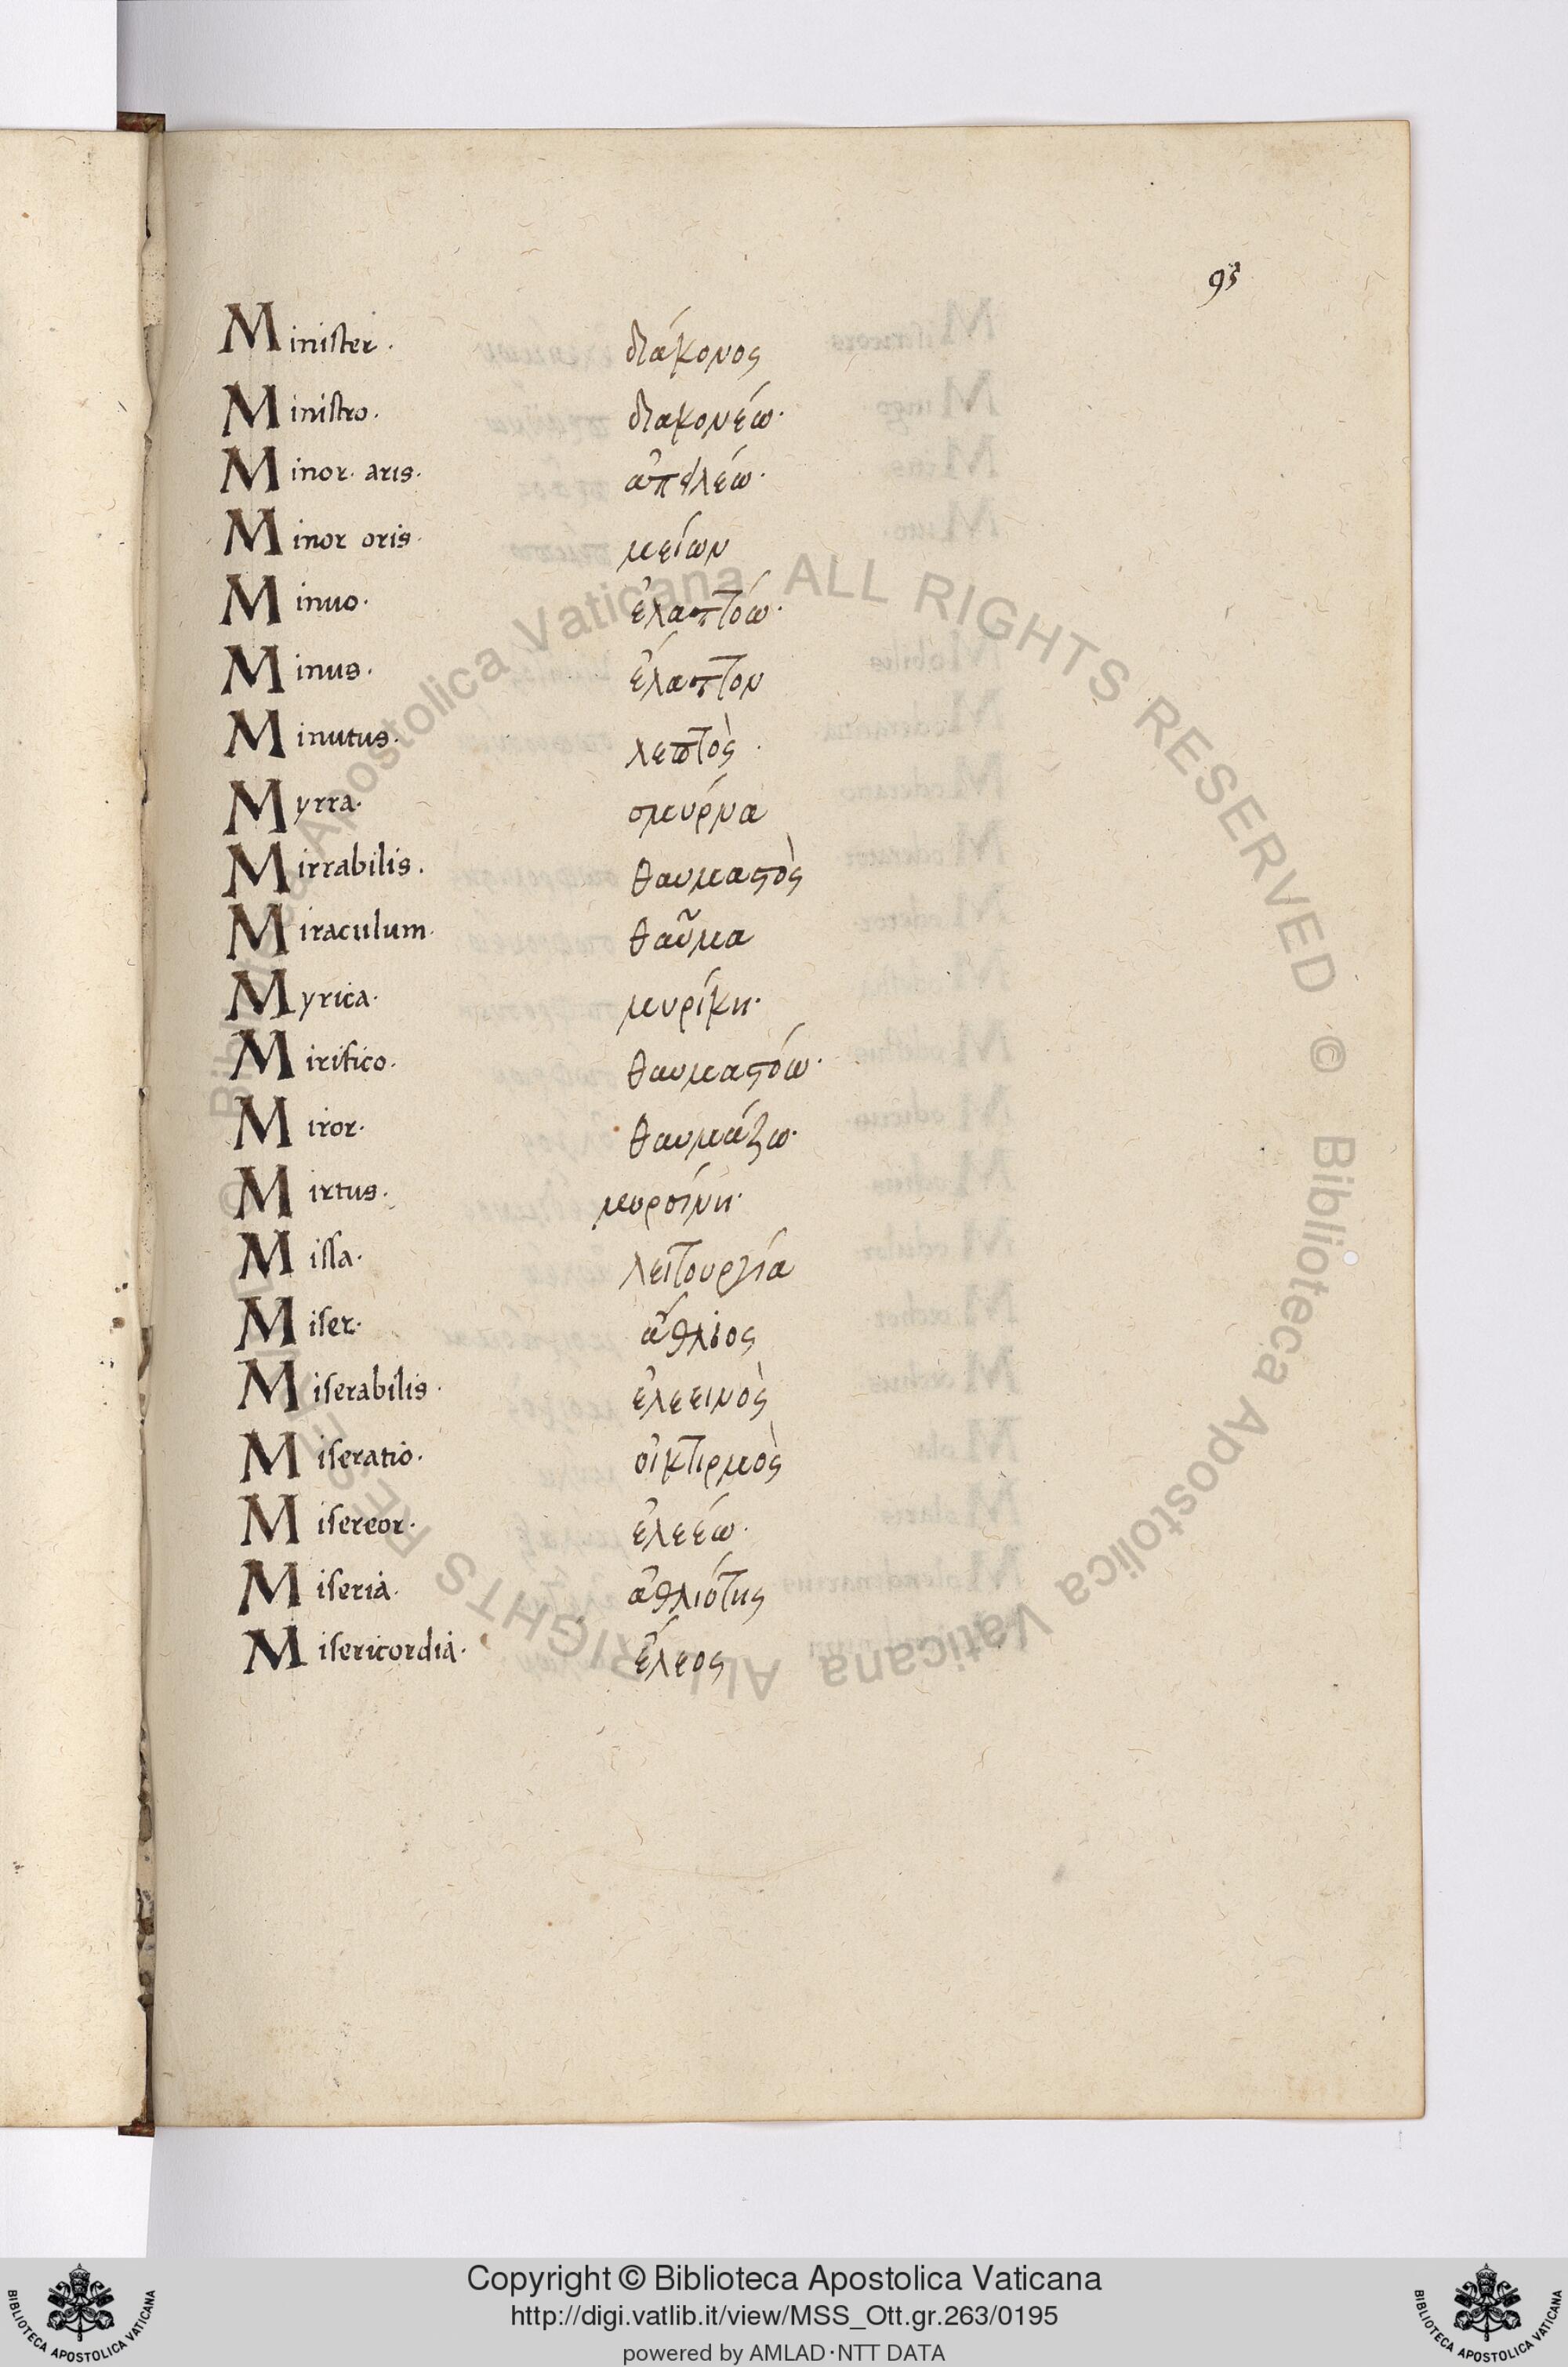 95
Minister· διάκονος
Ministro· διακονέω·
Minor· aris· ἀπειλέω·
Minor oris· μείων
Minuo· ἐλαττόω·
Minus· ἔλαττον
Minutus· λεπτὸς·
Myrra· σμυρ́να
Mirrabilis· θαυμαστὸς
Miraculum· θαῦμα
Myrica· μυρίκη·
Mirifico· θαυμαστόω·
Miror· θαυμάζω·
Mirtus· μυρσίνη·
Missa· λειτουργία
Miser· ἄθλιος
Miserabilis· ἐλεεινὸς
Miseratio· οἰκτιρμὸς
Misereor· ἐλεέω·
Miseria· ἀθλιότης
Misericordia· ἔλεος
© Biblioteca Apostolica Vaticana ALL RIGHTS RESERVED © Biblioteca Apostolica Vaticana ALL RIGHTS RESERVED
Copyright © Biblioteca Apostolica Vaticana
http://digi.vatlib.it/view/MSS_Ott.gr.263/0195
powered by AMLAD·NTT DATA
BIBLIOTECA APOSTOLICA VATICANA
BIBLIOTECA APOSTOLICA VATICANA